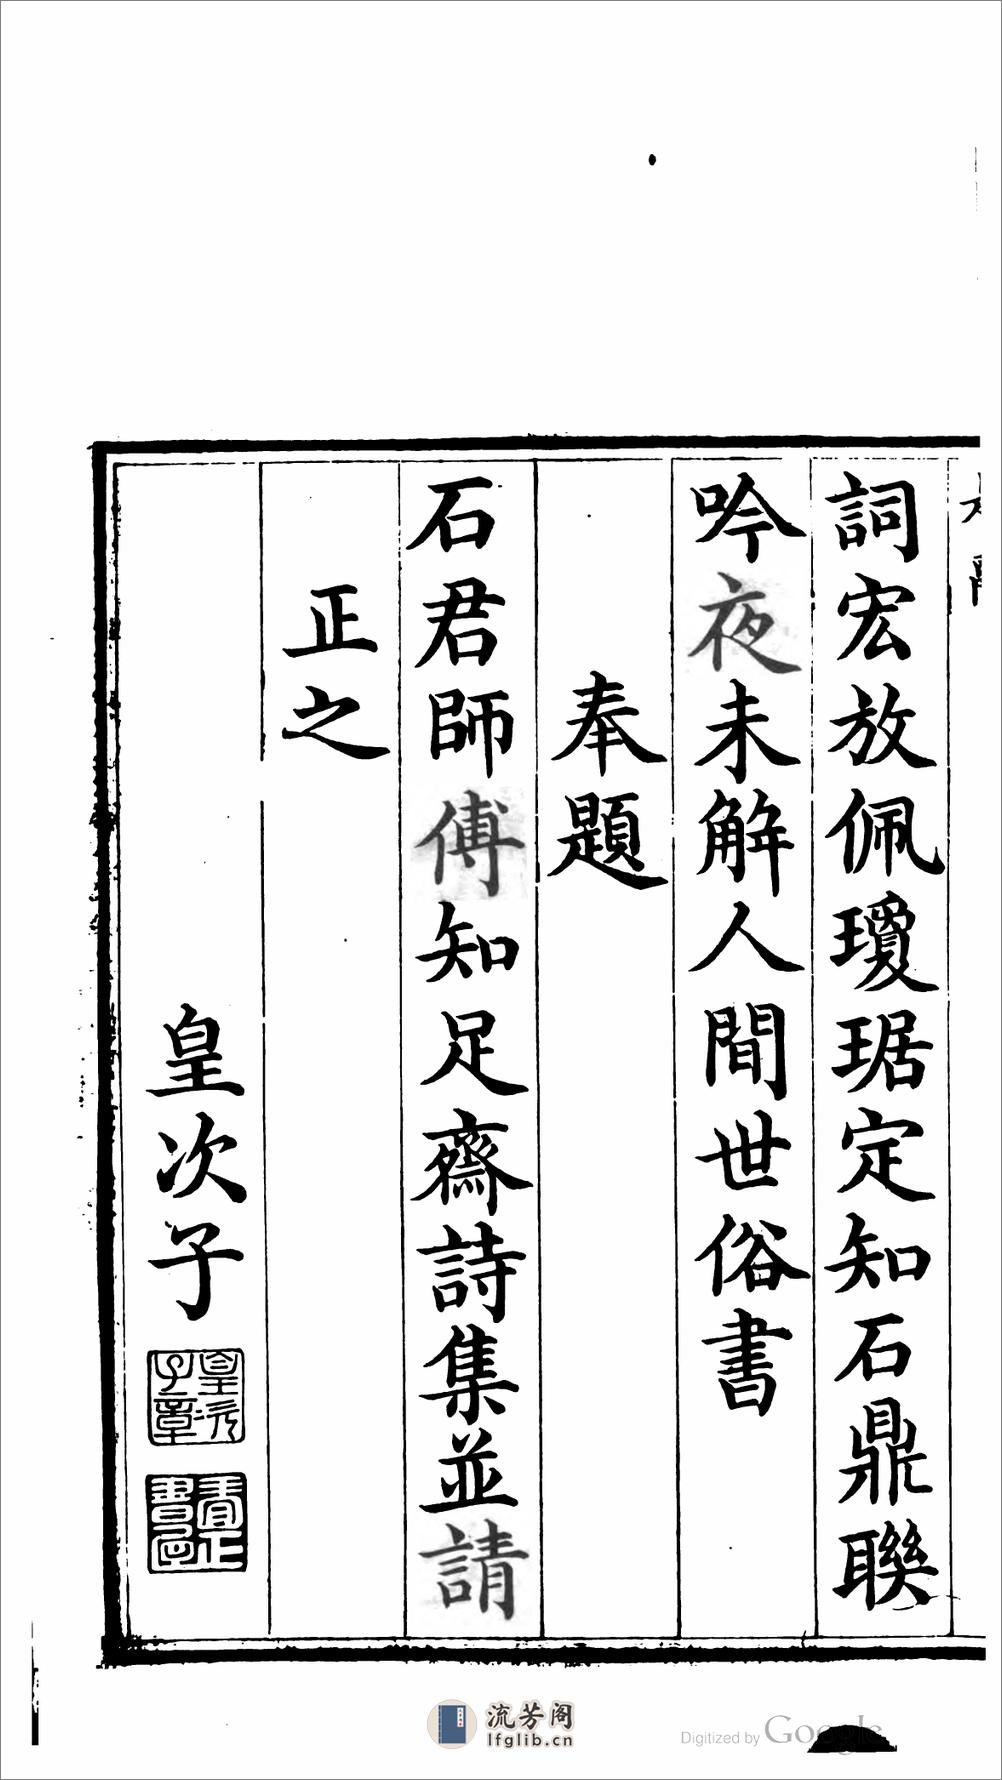 詞宏放佩瓊琚定知石鼎聯
吟夜未解人間世俗書
奉題
石君師傅知足齋詩集並請
正之
皇次子
皇次
子章
流芳阁
lfglib.cn
Digitized by Google